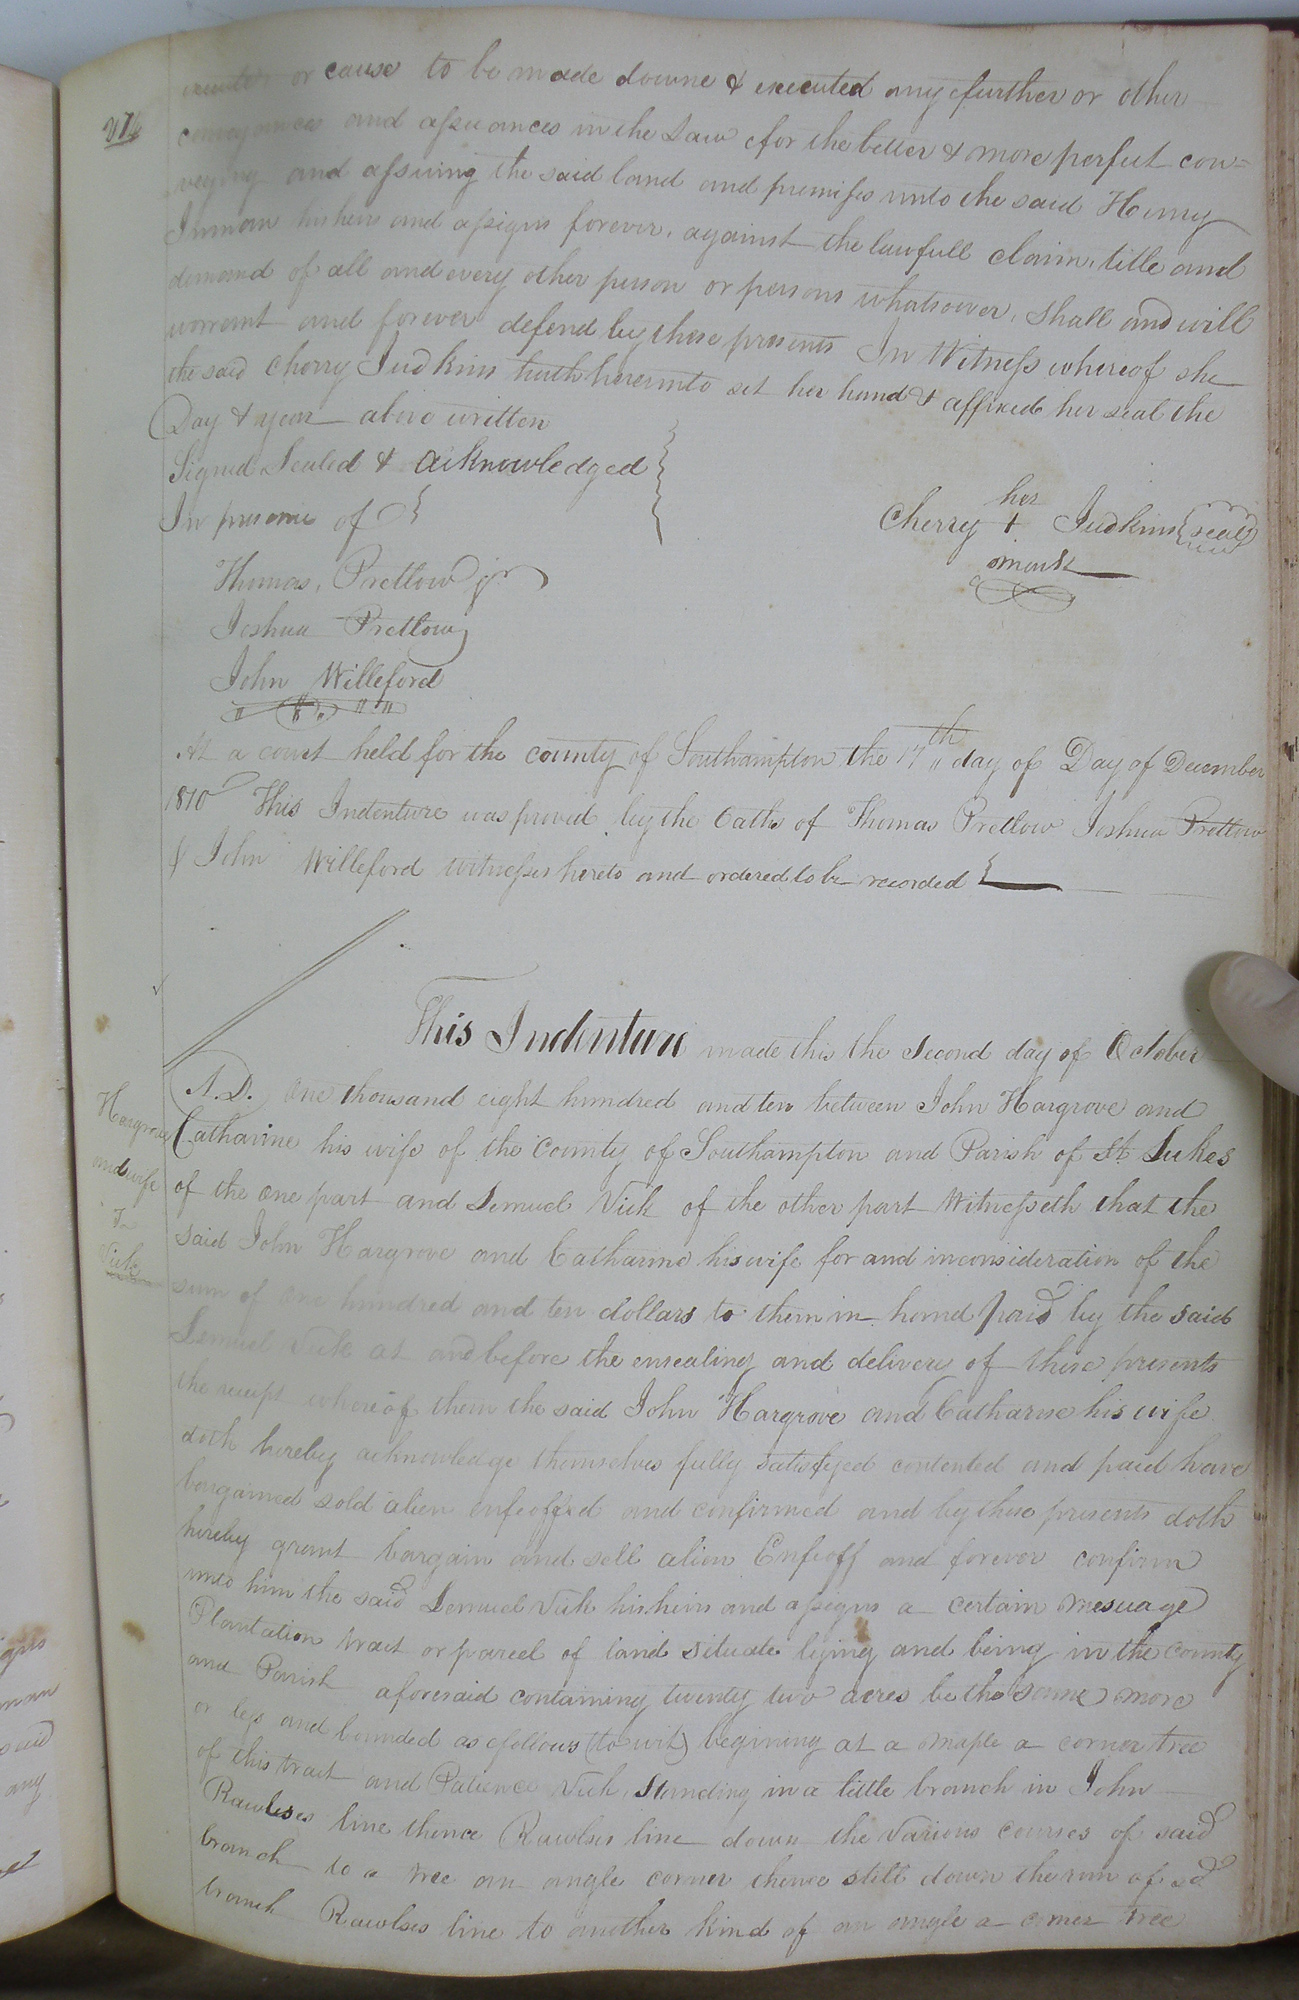 or cause to be made downe & executed any further or other
conveyances and assurances in the Law for the better & more perfect con=
veying and assuring the said land and premises unto the said Henry
Inman his heirs and assigns forever, against the lawfull claim, title and
demand of all and every other person or persons whatsoever, shall and will
warrant and forever defend by these presents In Witness whereof she
the said Cherry Judkins hath hereunto set her hand & affixed her seal the
Day & year above written
Signed Sealed & acknowledged
In presence of
her
Cherry + Judkins seal
mark
Thomas, Pretlow jr
Joshua Pretlow
John Willeford
At a court held for the county of Southampton the 17th day of Day of December
1810 This Indenture was proved by the Oaths of Thomas Pretlow Joshua Pretlow
& John Willeford witnesses hereto and ordered to be recorded
This Indenture made this the Second day of October
A.D. One thousand eight hundred and ten between John Hargrove and
Hargrove
and wife
To
Vick
Catharine his wife of the County of Southampton and Parish of St. Lukes
of the one part and Lemuel Vick of the other part Witnesseth that the
said John Hargrove and Catharine his wife for and inconsideration of the
sum of one hundred and ten dollars to them in hand paid by the said
Lemuel Vick at and before the ensealing and delivere of these presents
the receipt whereof them the said John Hargrove and Catharine his wife
doth hereby acknowledge themselves fully satisfyed contented and paid have
bargained sold alien enfeoffed and confirmed and by these presents doth
hereby grant bargain and sell alien Enfeoff and forever confirm
unto him the said Lemuel Vick his heirs and assigns a certain mesuage
Plantation tract or parcel of land situate lying and being in the County
and Parish aforesaid containing twenty two acres be the same more
or less and bounded as follows (to wit) begining at a maple a corner tree
of this tract and Patience Vick, Standing in a little branch in John
Rawlses line thence Rawlses line down the Various courses of said
branch to a tree an angle corner thence still down the run of sd
branch Rawlses line to another kind of an angle a corner tree